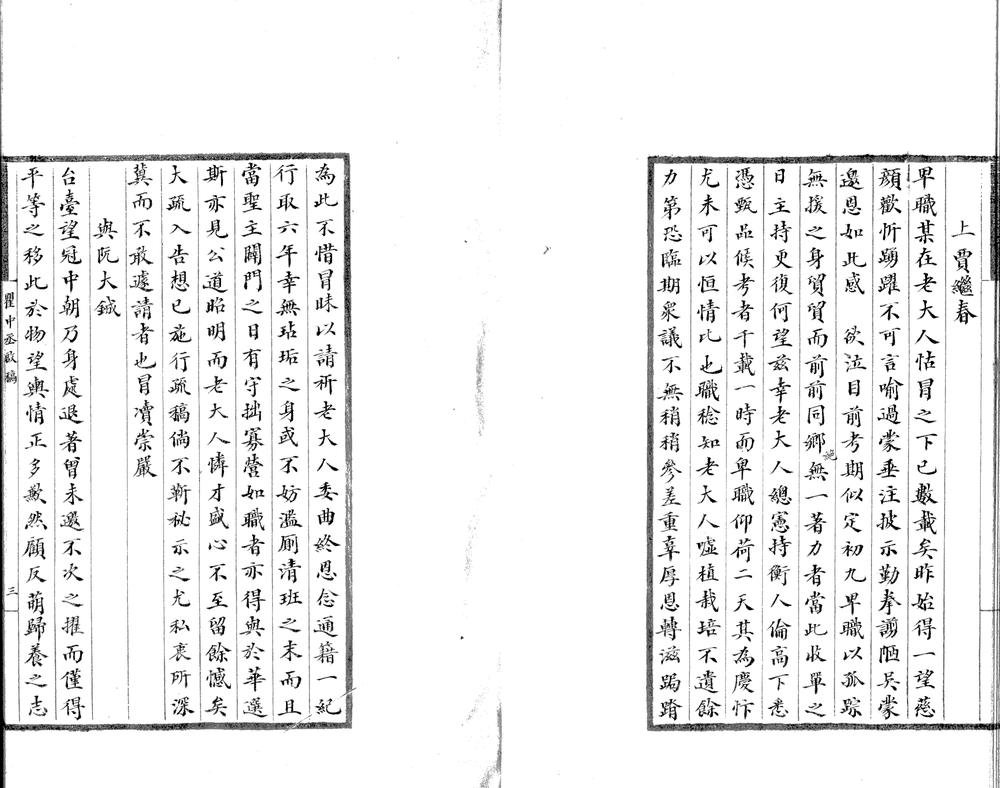 上賈繼春
卑職某在老大人怙冒之下已數載矣昨始得一望慈
顏歡忻踴躍不可言喻過蒙垂注披示勤拳謭陋吳蒙
邀恩如此感　欲泣目前考期似定初九卑職以孤踪
無援之身貿貿而前前同鄉無一著力者當此收單之
日主持更復何望茲幸老大人總憲持衡人倫高下悉
憑甄品候考者千載一時而卑職仰荷二天其為慶忭
尤未可以恒情比也職稔知老大人噓植栽培不遺餘
力第恐臨期衆議不無稍稍參差重辜厚恩轉滋跼蹐
為此不惜冒昧以請祈老大人委曲終恩念通籍一紀
行取六年幸無玷垢之身或不妨濫厠清班之末而且
當聖主闢門之日有守拙寡營如職者亦得與於華選
斯亦見公道昭明而老大人憐才盛心不至留餘憾矣
大疏入告想已施行疏稿倘不靳秘示之尤私衷所深
冀而不敢遽請者也冒凟崇嚴
與阮大鋮
台臺望冠中朝乃身處退著曾未邀不次之擢而僅得
平等之移此於物望輿情正多歉然顧反萌歸養之志
瞿中丞啟稿
三